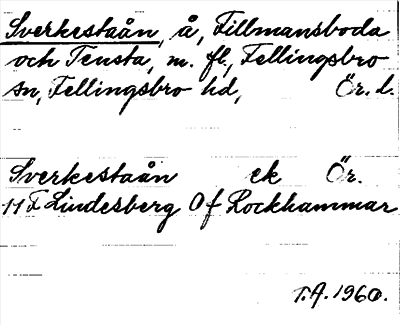 Sverkestaån, å, Tillbmansboda
och Tensta, m. fl., Fellingsbro
sn, Fellingsbro hd, Ör. l.
Sverkestaån ek Ör.
11 F Lindesberg Of Rockhammar
T.A. 1960.